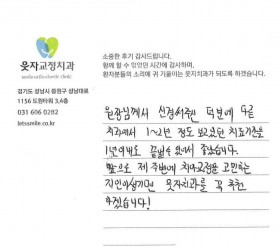 웃자교정치과
smile orthodontic clinic
경기도 성남시 중원구 성남대로
1156 도원타워 3,4층
031 606 0282
letssmile.co.kr
소중한 후기 감사드립니다.
함께 할 수 있었던 시간에 감사하며,
환자분들의 소리에 귀 기울이는 웃자치과가 되도록 하겠습니다.
원장님께서 신경써주신 덕분에 다른
치과에서 1~2년 정도 보았던 치료기간을
1년이내로 끝낼수 있어서 좋았습니다.
앞으로 제 주변에 치아교정을 고민하는
지인이있다면 웃자치과를 꼭 추천
하겠습니다!